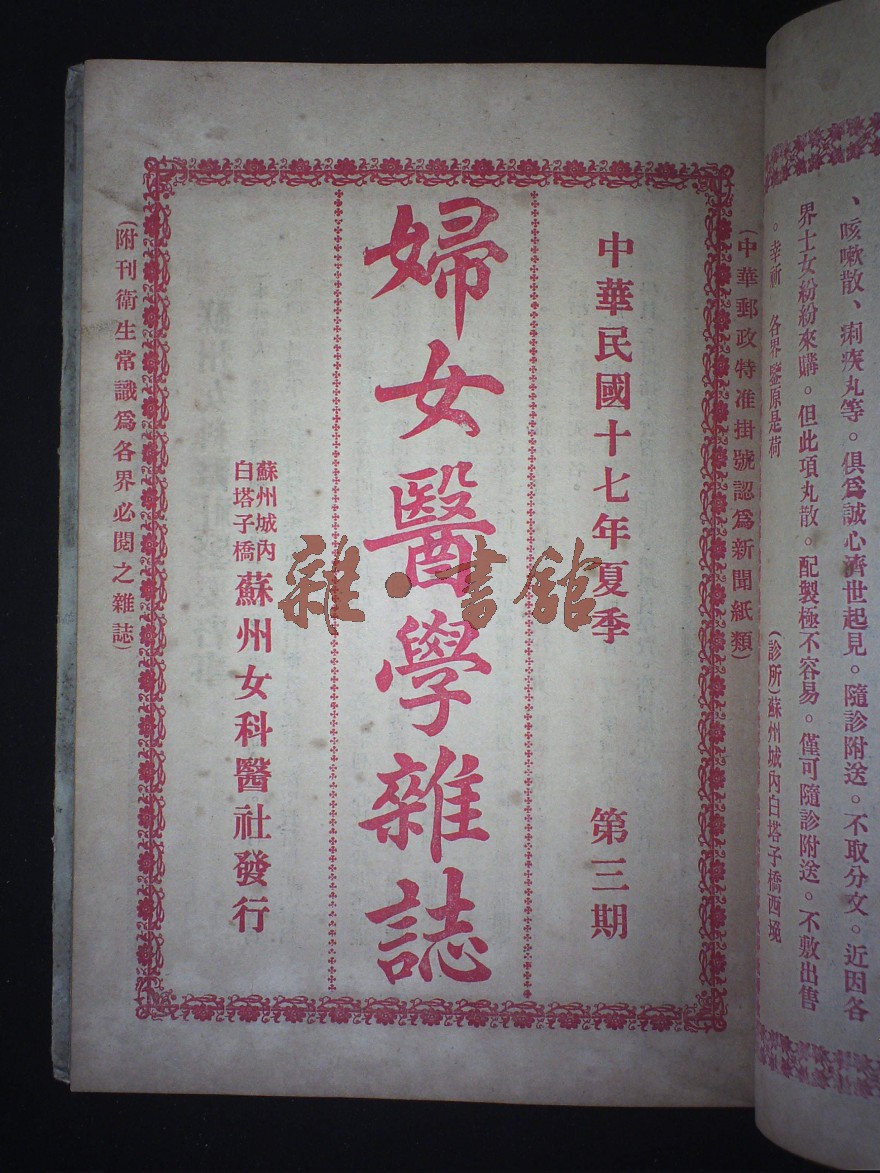 、咳嗽散、痢疾丸等。俱爲誠心濟世起見。隨診附送。不取分文。近因各
界士女紛紛來購。但此項丸散。配製極不容易。僅可隨診附送。不敷出售
。幸祈　各界鑒原是荷
(診所)蘇州城內白塔子橋西堍
(中華郵政特准掛號認爲新聞紙類)
中華民國十七年夏季　第三期
婦女醫學雜誌
蘇州城內
白塔子橋
蘇州女科醫社發行
(附刊衛生常識爲各界必閱之雜誌)
雜·書館